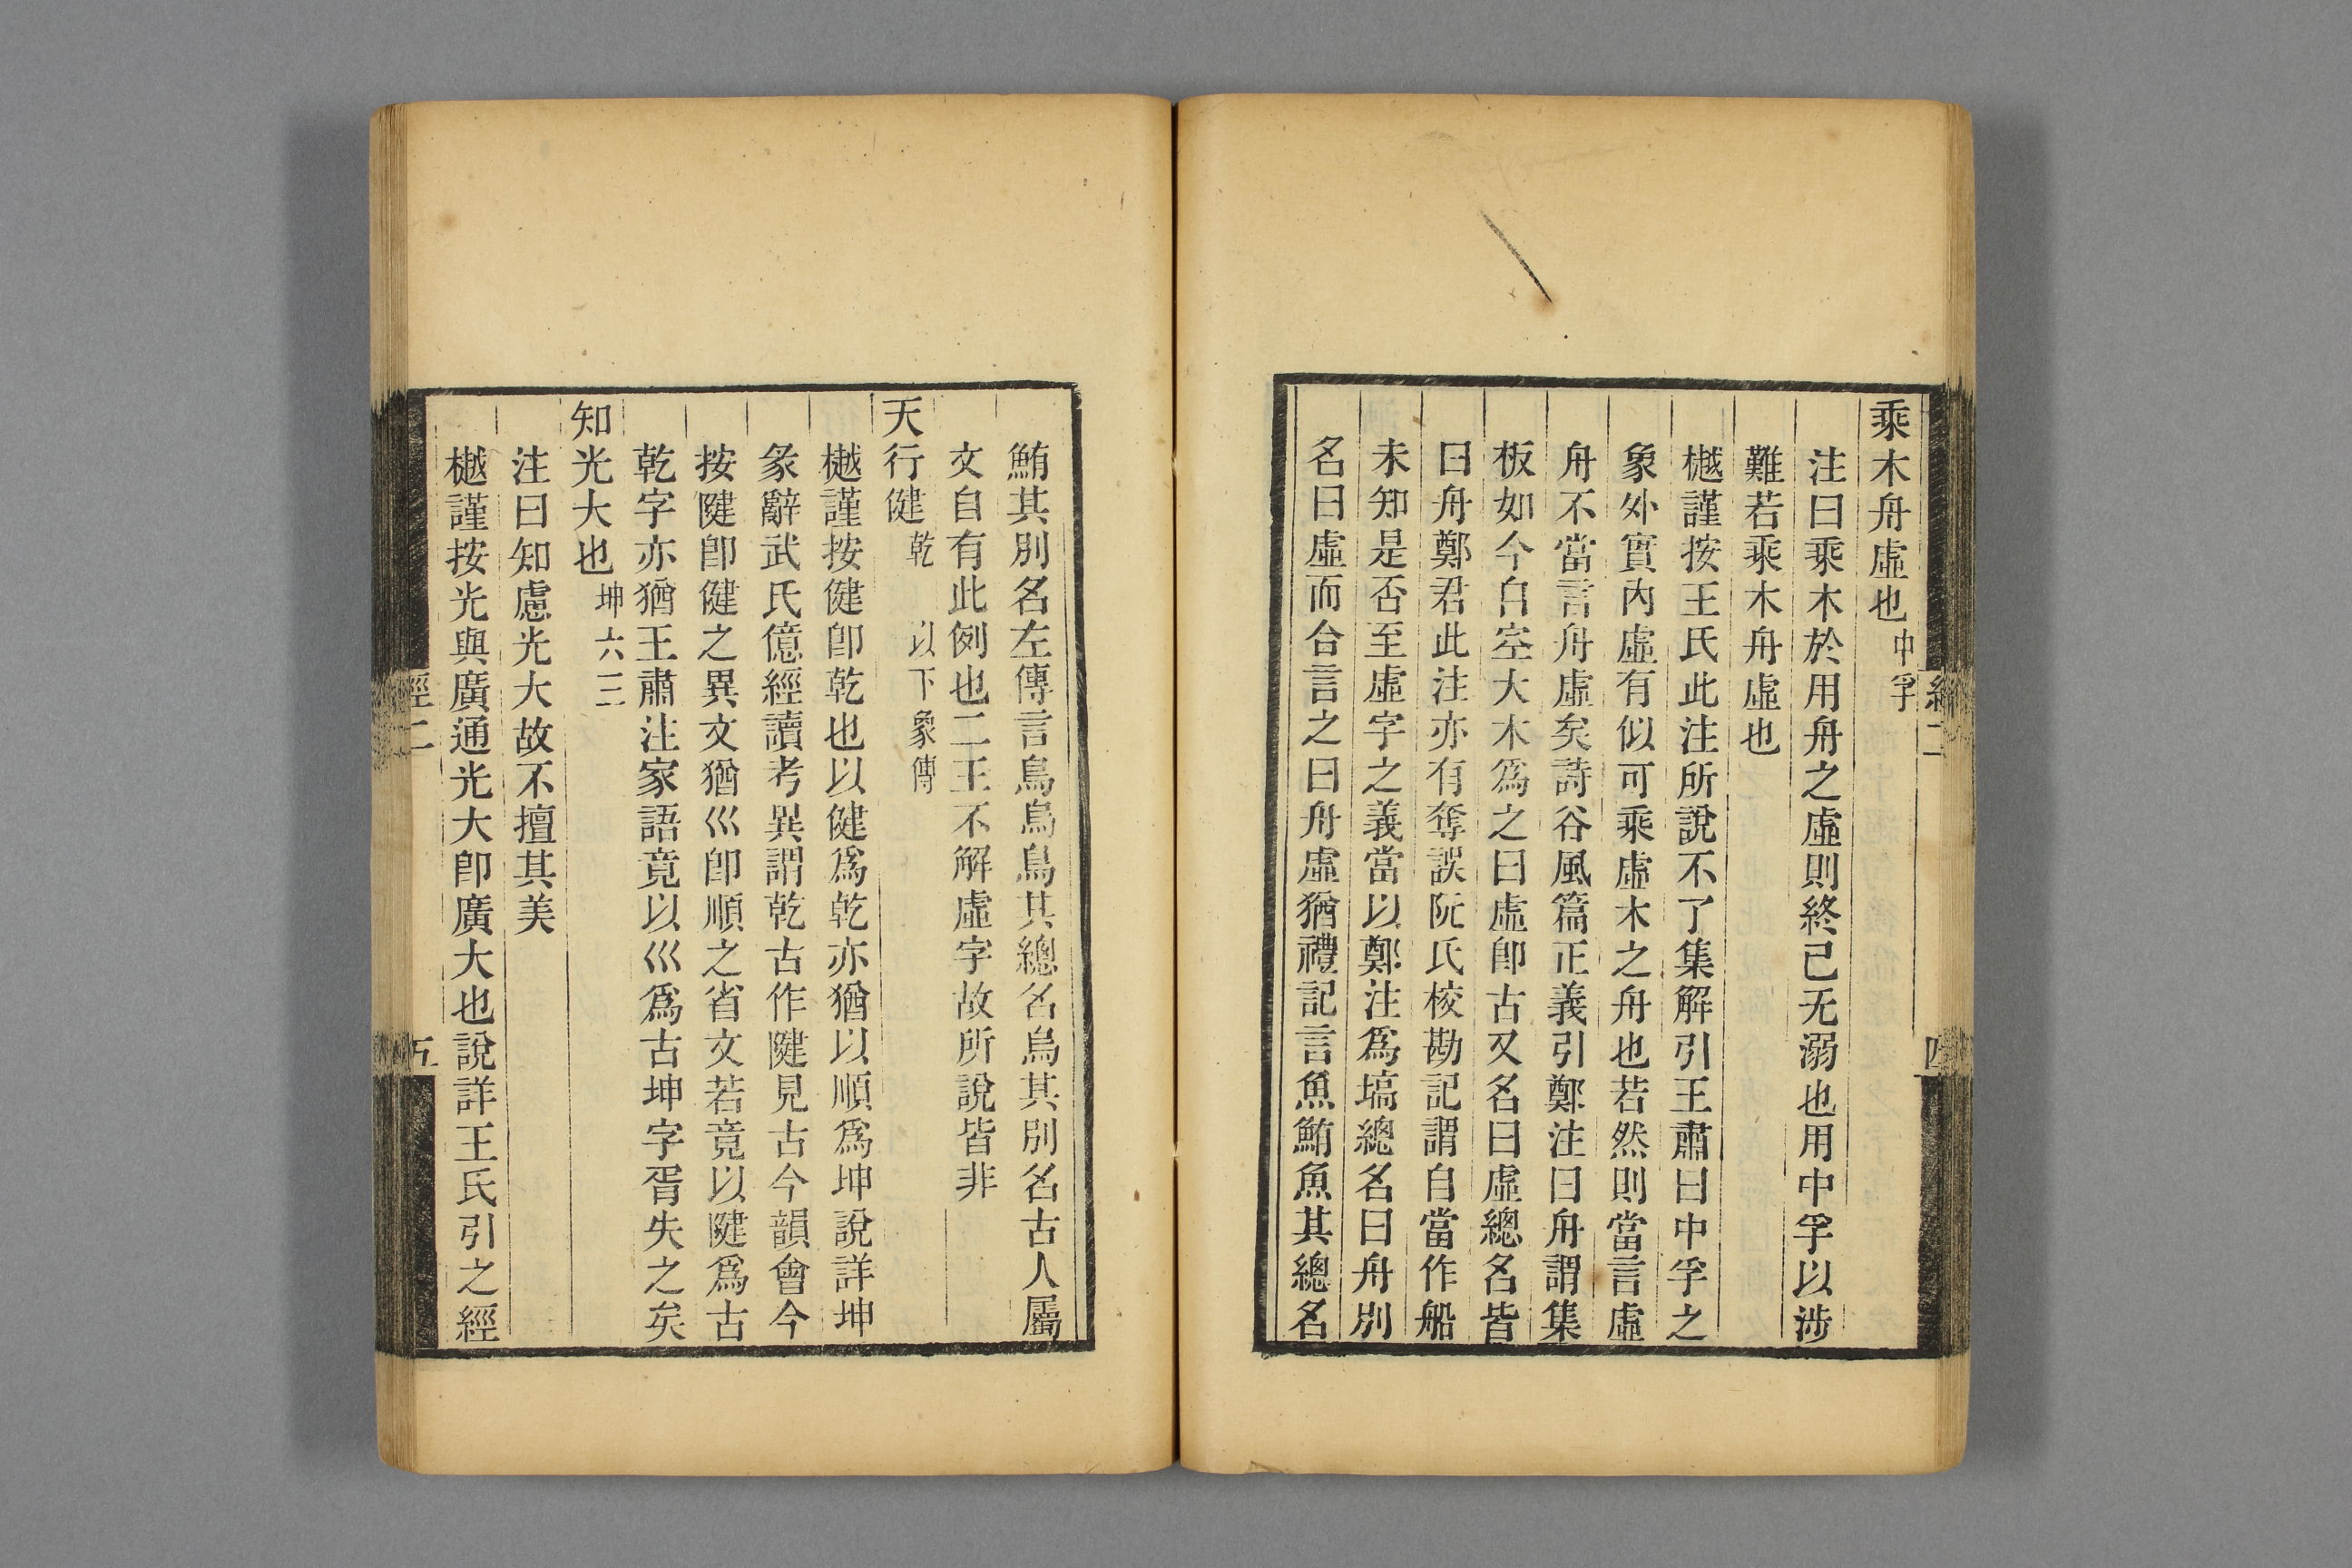 乘木舟虛也中孚
注曰乘木於用舟之虛則終已无溺也用中孚以涉
難若乘木舟虛也
樾謹按王氏此注所說不了集解引王肅曰中孚之
象外實內虛有似可乘虛木之舟也若然則當言虛
舟不當言舟虛矣詩谷風篇正義引鄭注曰舟謂集
板如今自空大木爲之曰虛卽古又名曰虛總名皆
曰舟鄭君此注亦有奪誤阮氏校勘記謂自當作船
未知是否至虛字之義當以鄭注爲塙總名曰舟別
名曰虛而合言之曰舟虛猶禮記言魚鮪魚其總名
經二
四
鮪其別名左傳言鳥烏鳥其總名烏其別名古人屬
文自有此例也二王不解虛字故所說皆非
天行健乾 以下象傳
樾謹按健卽乾也以健爲乾亦猶以順爲坤說詳坤
彖辭武氏億經讀考異謂乾古作䭈見古今韻會今
按䭈卽健之異文猶巛卽順之省文若竟以䭈爲古
乾字亦猶王肅注家語竟以巛爲古坤字胥失之矣
知光大也坤六三
注曰知慮光大故不擅其美
樾謹按光與廣通光大卽廣大也說詳王氏引之經
經二
五